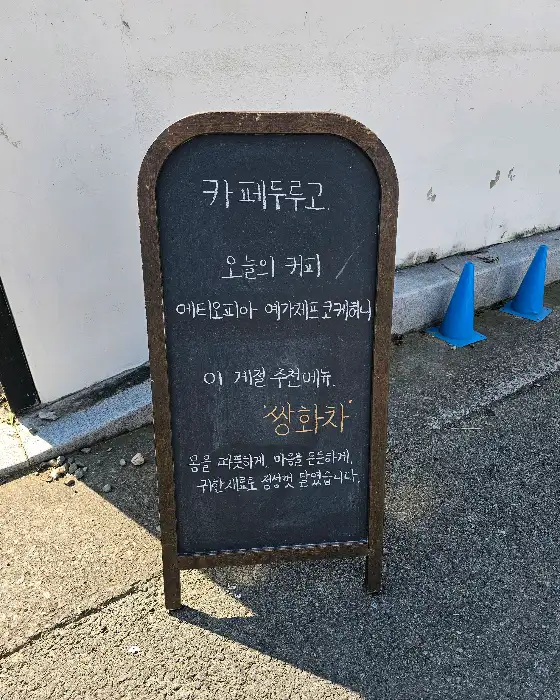 카페두루고
오늘의 커피
에티오피아 예가체프 코케허니
이 계절 추천메뉴.
'쌍화차'
몸을 따뜻하게, 마음을 든든하게,
귀한 재료로 정성껏 달였습니다.